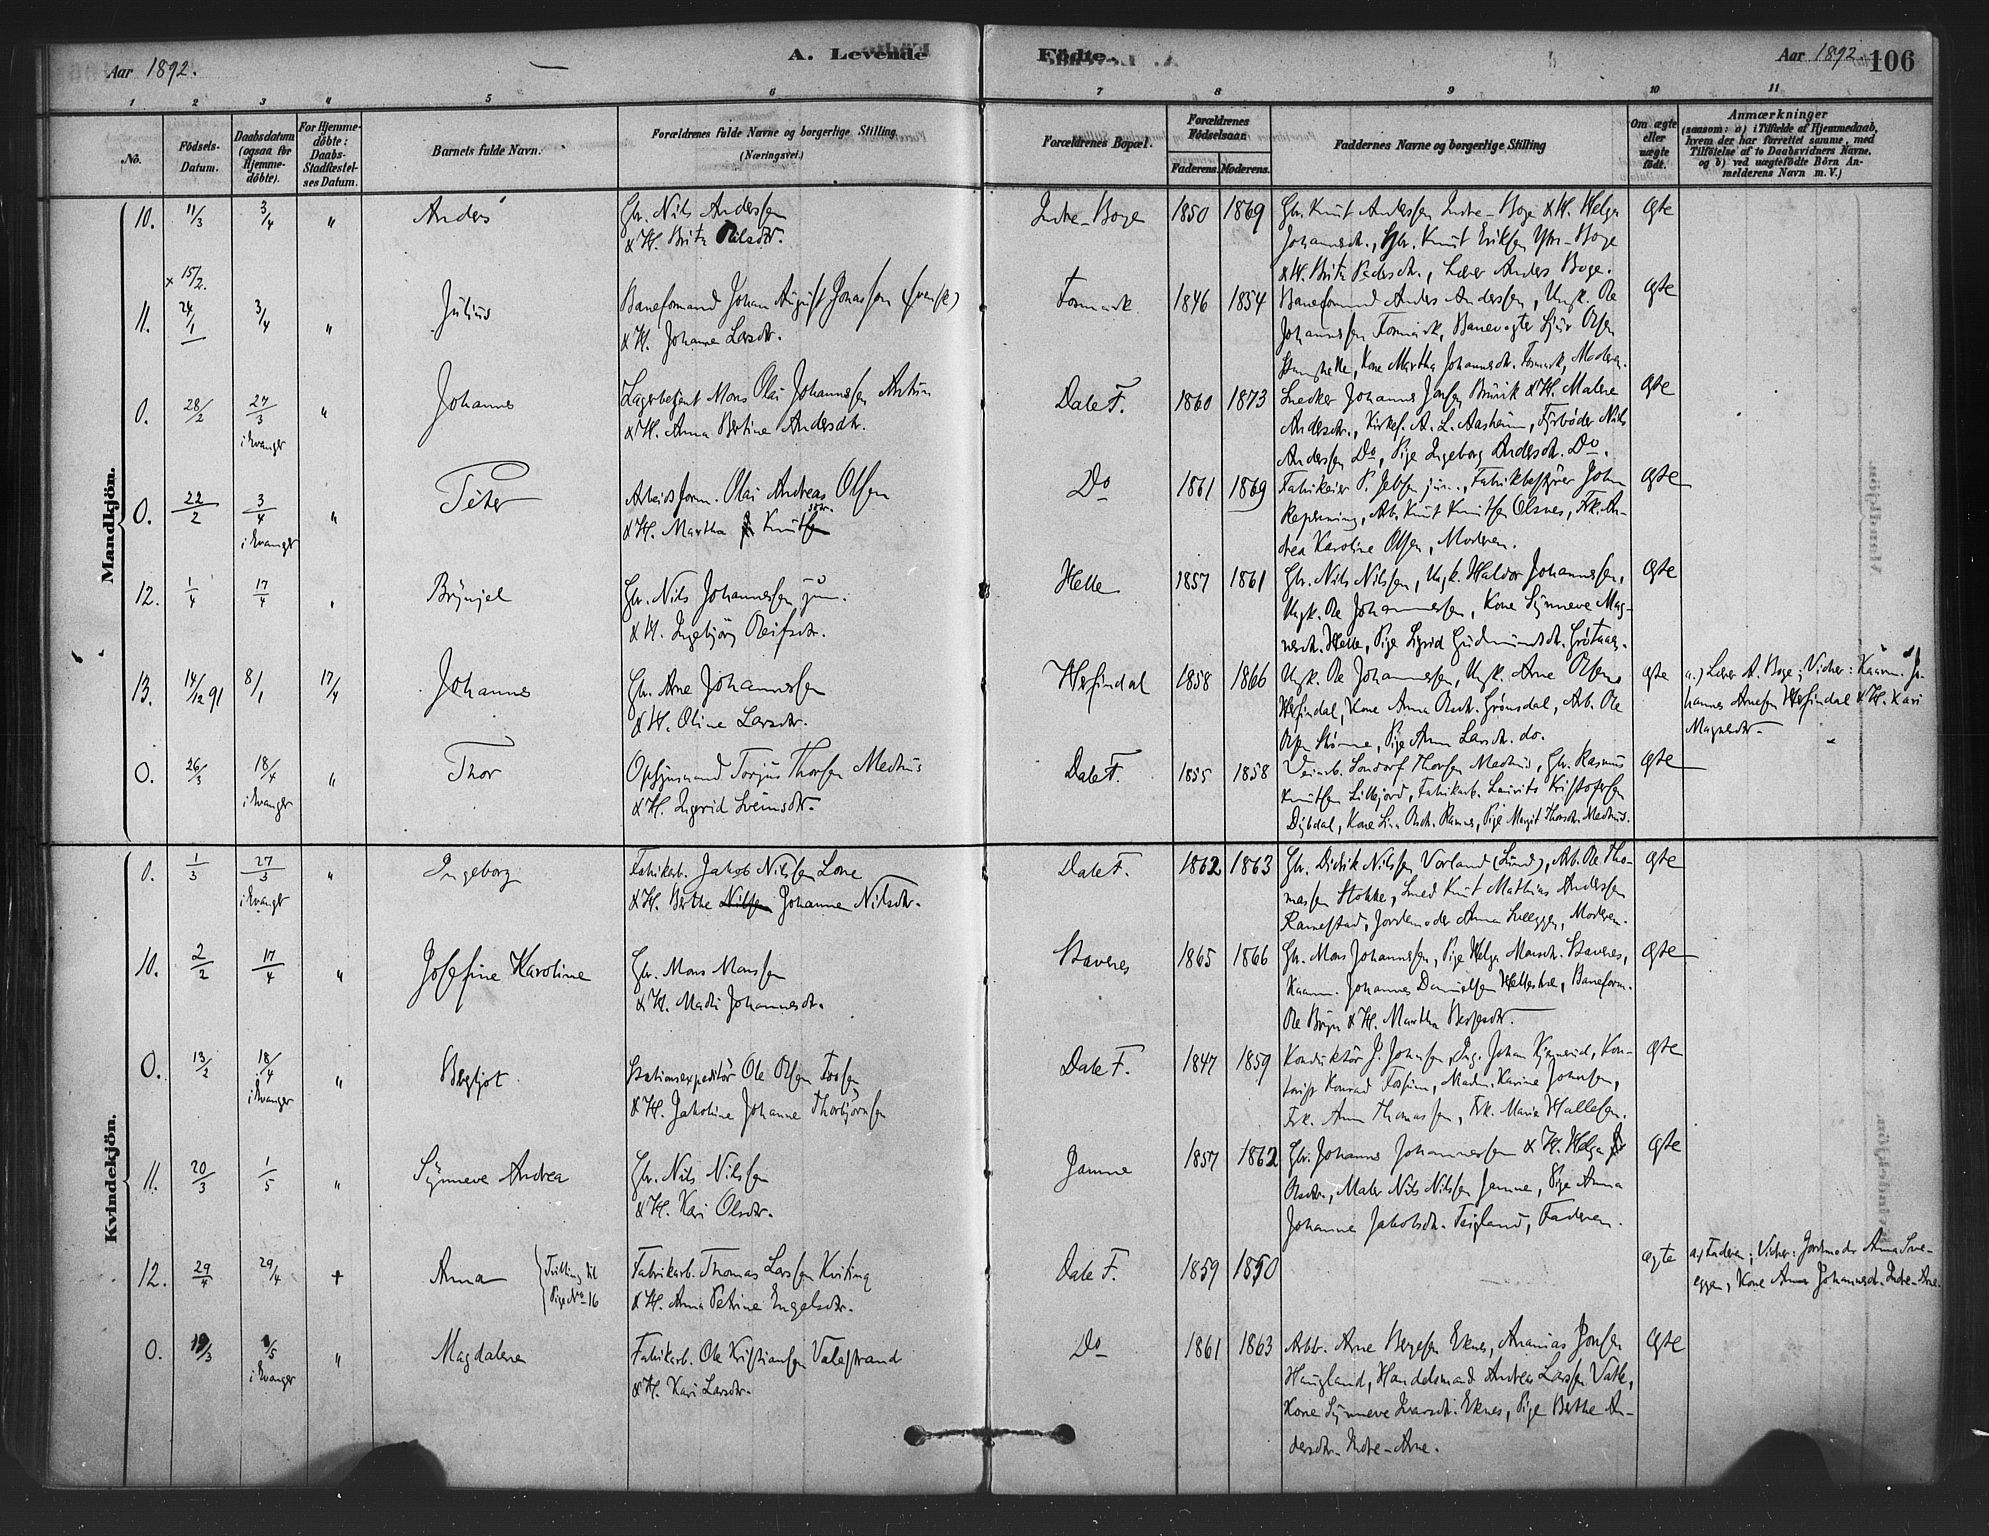 Aar 1892.
A. Levende
Födte.
Aar 1892.
106
1 2 3 4 5 6 7 8 9 10 11
No.
Födsels-Datum.
Daabsdatum (ogsaa for Hjemme-döbte).
For Hjemme-döbte: Daabs-Stadfæstel-ses Datum.
Barnets fulde Navn.
Forældrenes fulde Navne og borgerlige Stilling
(Næringsvei.)
Forældrenes Bopæl.
Forældrenes Födselsaar
Faderens. Moderens.
Faddernes Navne og borgerlige Stilling
Om ægte eller uægte födt.
Anmærkninger
(saasom: a) i Tilfælde af Hjemmedaab, hvem der har forrettet samme, med Tilföielse af to Daabsvidners Navne, og b) ved uægtefödte Börn An-melderens Navn m. V.)
Mandkjön.
10. 11/3 3/4 " Anders Gbr. Nils Anderssen
& H. Brita Nilsdtr.
Indre-Boge 1850 1869 Gbr. Knut Anderssen Indre-Boge & H. Helga
Johannesdtr., Gbr. Knut Eriksen Ytre-Boge
& H. Brita Pedersdtr., Lærer Anders Boge.
ægte
x 15/2.
11. 24/1 3/4 " Julius Baneformand Johan August Jonassen (svensk)
& H. Johanne Larsdtr.
Fosmark 1846 1854 Baneformand Anders Anderssen, Ungk. Ole
Johannessen Fosmark, Banevogter Sjur Olsen
Kone Martha Johannesdtr. Fosmark, Moderen.
ægte
0. 28/2 27/3 i Evanger " Johannes Lagerbetjent Mons Olai Johannessen
& H. Anna Bertine Andersdtr.
Dale F. 1860 1873 Snedker Johannes Jonsen Brüvik & H. Malene
Andersdtr., Kirkes. A. L. Aasheim, Fyrbøder Nils
Anderssen Do, Pige Ingeborg Andersdtr. Do.
ægte
0. 22/2 3/4 i Evanger " Peter Arbeidsform. Olai Andreas Olsen
& H. Martha Knutsdtr.
Do 1861 1869 Fabrikeier P. Jebsen jun., Fabrikbestyrer John
Arb. Knut Knutsen Olsnes, Frk. An-
drea Karoline Olsen, Moderen.
ægte
12. 1/4 17/4 " Brynjel Gbr. Nils Johannessen jun.
& H. Ingebjørg
Helle 1857 1861 Gbr. Nils Nilssen, Ungk. Haldor Johannessen,
Ungk. Ole Johannessen, Kone Synneve Mag-
nesdtr. Helle, Pige Sigrid Gudmundsdtr.
ægte
13. 14/12 91 8/1 17/4 Johannes Gbr. Arne Johannessen
& H. Oline Larsdtr.
Hesjindal 1858 1866 Ungk. Ole Johannessen, Ungk. Arne Olsen
Hesjindal, Kone Anna Olsdtr. Grønsdal, Arb. Ole
Olsen Pige Anna Larsdtr. do.
ægte
a.) Lærer A. Boge; Vidner: Kaarm. Jo-
hannes Arnesen Hesjindal & H. Kari
Magnesdtr.
0. 26/3 18/4 i Evanger " Thor Opsynsmand Torjus Thorsen Medhus
& H. Ingrid Sveinsdtr.
Dale F. 1855 1858 Thorsen Medhus, Gbr. Rasmus
Knutsen Lillejord, Fabrikarb. Laurits Kristofersen
Dybdal, Kone Lina Olsdtr. Pige Margit Thorsdtr. Medhus.
ægte
Kvindekjön.
0. 1/3 27/3 i Evanger " Ingeborg Fabrikarb. Jakob Nilssen Lone
& H. Berthe Johanne Nilsdtr.
Dale F. 1862 1863 Gbr. Didrik Nilssen Vorland (Lund), Arb. Ole Tho-
massen Stokke, Smed Knut Mathias Anderssen
Ramestad, Jordemoder Anna Sveeggen, Moderen.
ægte
10. 2/2 17/4 " Josefine Karoline Gbr. Mons Monssen
& H. Madli Johannesdtr.
Stavenes 1865 1866 Gbr. Mons Johannessen, Pige Helga Monsdtr. Stavenes,
Kaarm. Johannes Danielsen Baneform.
Ole & H. Martha
ægte
0. 13/2 18/4 i Evanger " Bergljot Stationsexpeditör Ole Olsen Fossen
& H. Jakobine Johanne Thorbjørnsen
Dale F. 1847 1859 Konduktör J. Johnsen, Ing. Johan Kon-
torist Konrad Madm. Karine Johnsen,
Frk. Anna Thomassen, Frk. Marie Hallesen.
ægte
11. 20/3 1/5 " Synneve Andrea Gbr. Nils Nilssen
& H. Kari Olsdtr.
Jamne 1857 1862 Gbr. Johannes Johannessen & H. Helga
Olsdtr., Maler Nils Nilssen Jamne, Pige Anna
Johanne Jakobsdtr. Teigland, Faderen.
ægte
12. 29/4 29/4 + Anna Tvilling til
Pige No 16
Fabrikarb. Thomas Larssen Kviting
& H. Anna Petrine Engelsdtr.
Dale F. 1859 1850 ægte
a.) Faderen; Vidner: Jordemoder Anna Sve-
eggen, Kone Anna Johannesdtr. Indre-Arne.
0. 19/3 1/5 i Evanger " Magdalena Fabrikarb. Ole Kristiansen Valestrand
& H. Kari Larsdtr.
Do 1861 1863 Arbr. Arne Bergesen Eknes, Ananias Jonsen
Haugland, Handelsmand Andreas Larssen Vatle,
Kone Synneve Ivarsdtr. Eknes, Pige Berthe An-
dersdtr. Indre-Arne.
ægte